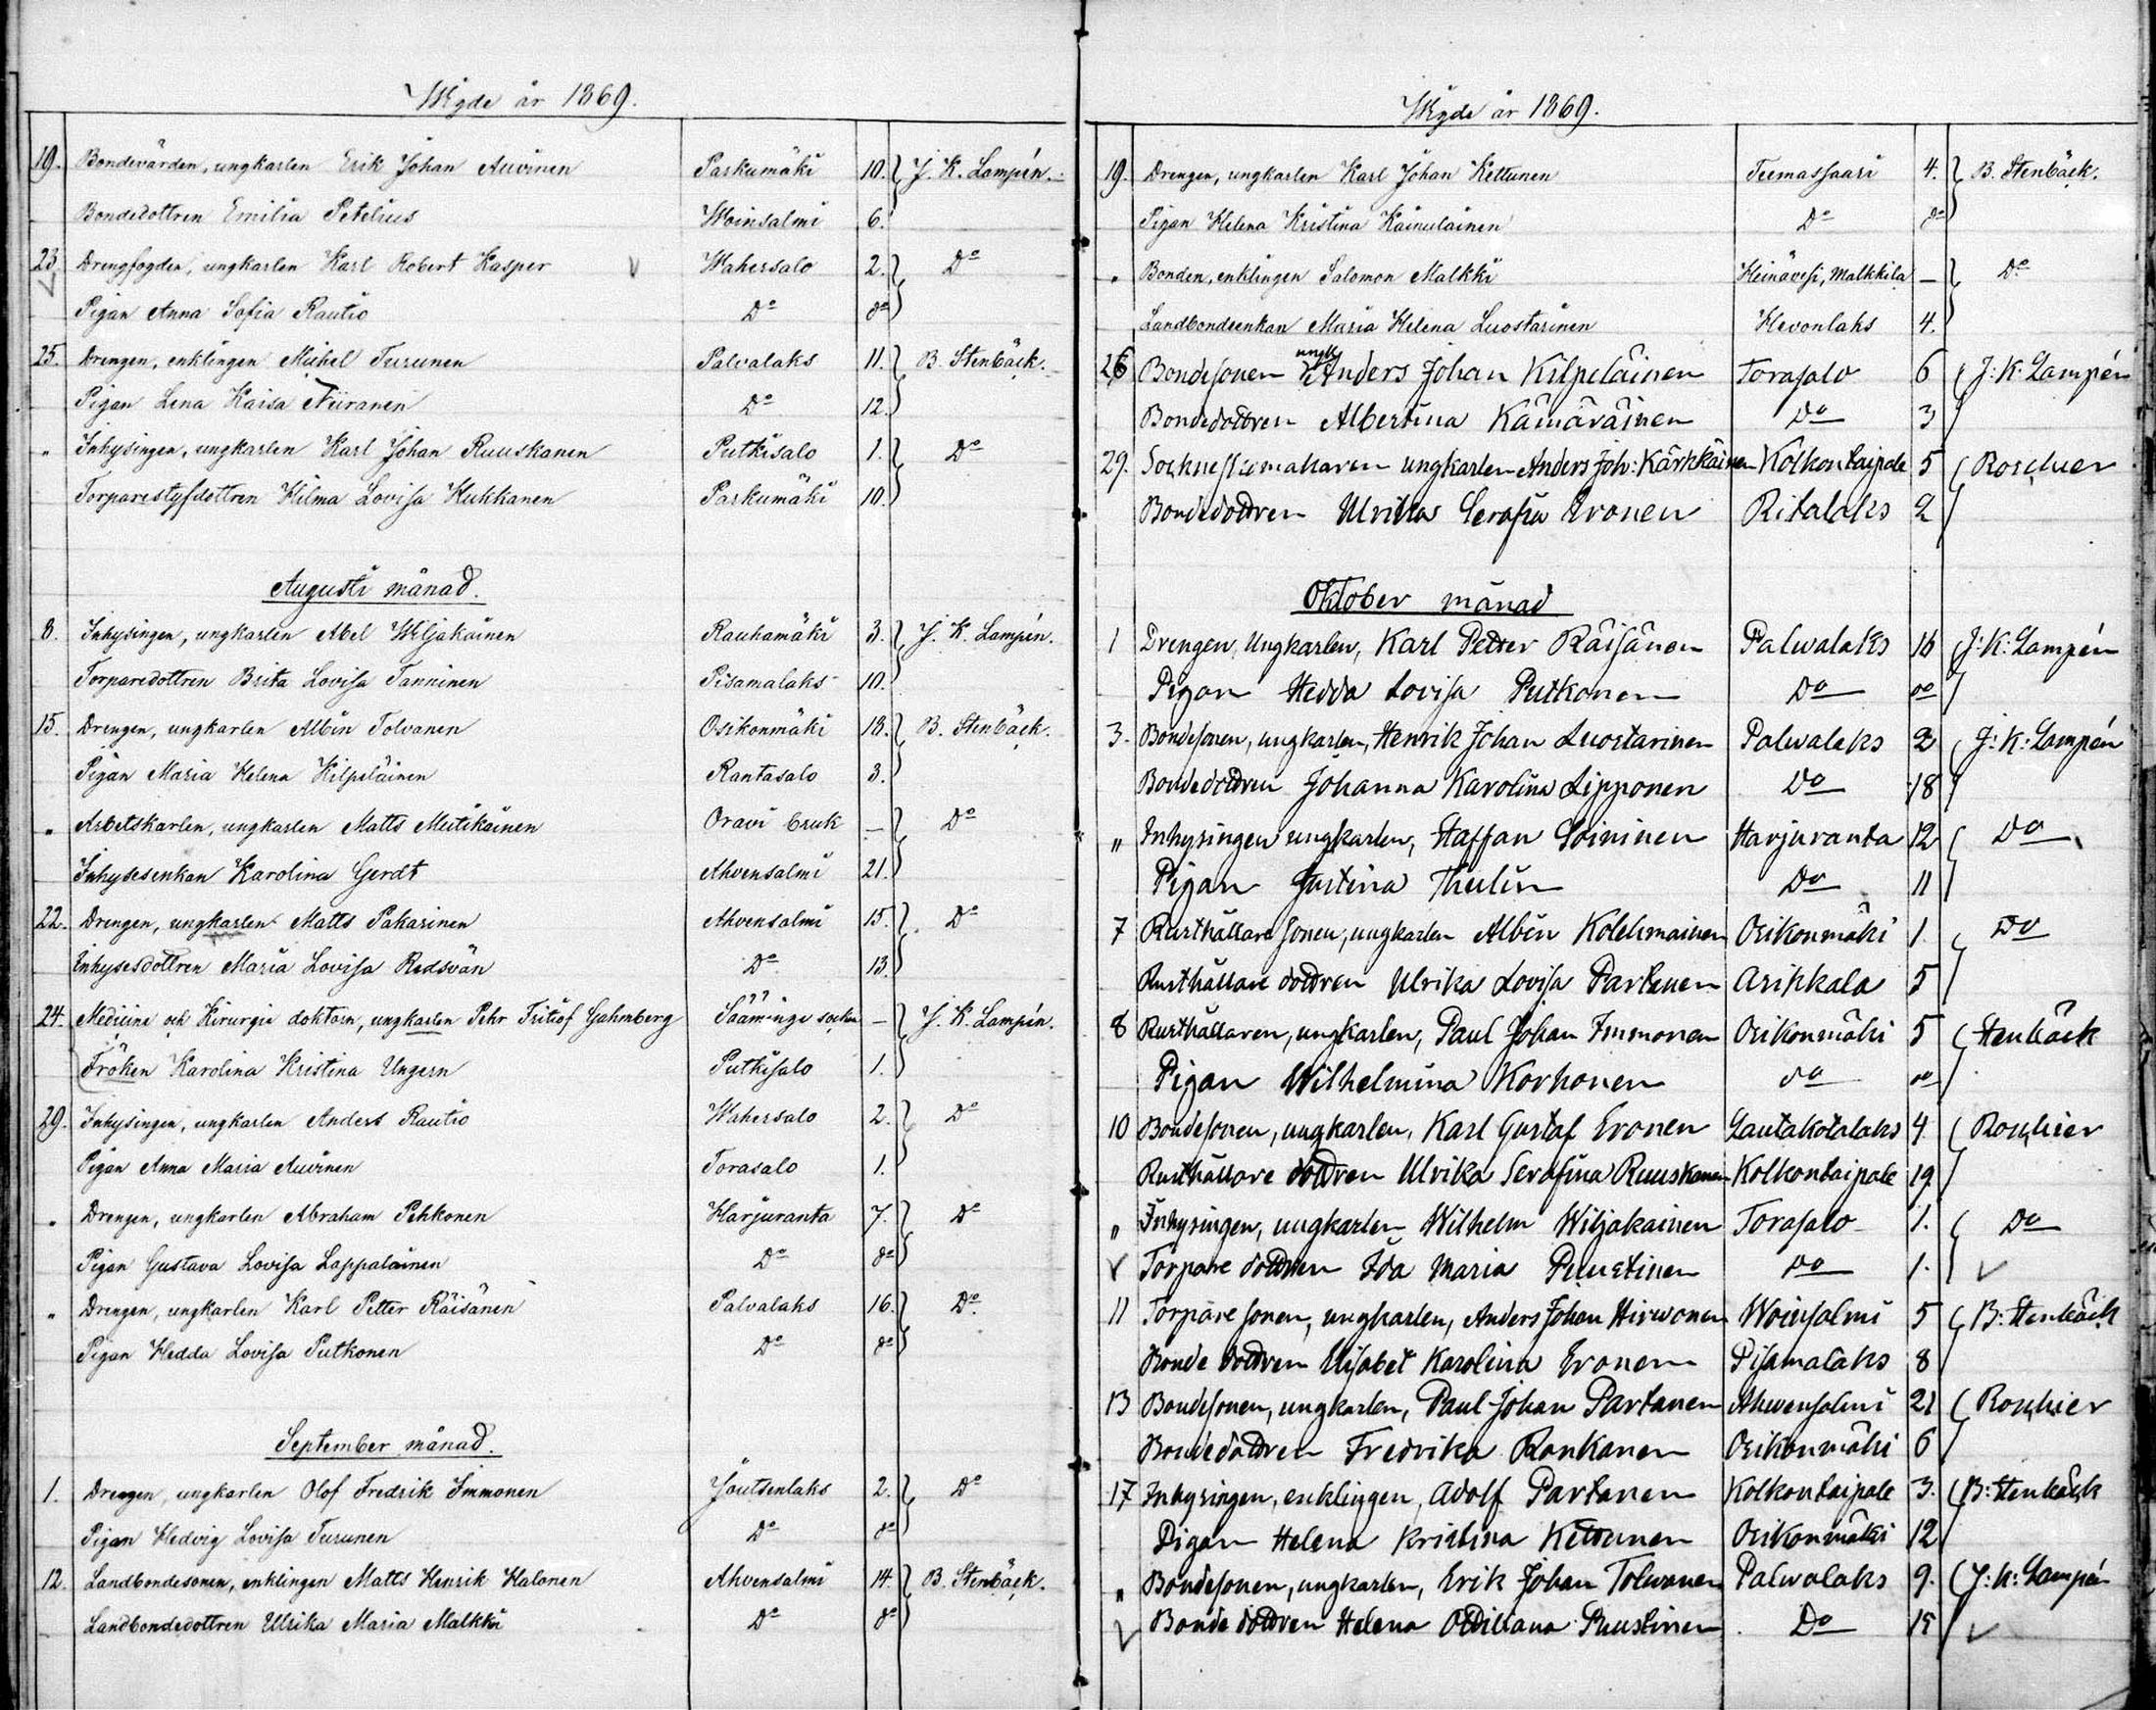 Wigde år 1869.
19. Bondevärden, ungkarlen Erik Johan Auvinen Paskumäki 10. J. K. Lampén.
Bondedottren Emilia Petelius Woinsalmi 6.
23. Drengfogden, ungkarlen Karl Robert Kasper Wahersalo 2. Do
Pigan Anna Sofia Rautio Do do
25. Drengen, enklingen Mickel Turunen Palvalaks 11. B. Stenbäck.
Pigan Lena Kaisa Niiranen Do 12.
" Inhysingen, ungkarlen Karl Johan Ruuskanen Putkisalo 1. Do
Torparestyfdottren Hilma Lovisa Kukkanen Paskumäki 10.
Augusti månad.
8. Inhysingen, ungkarlen Abel Wiljakainen Rauhamäki 3. J. K. Lampén.
Torparedottren Brita Lovisa Tanninen Pisamalaks 10.
15. Drengen, ungkarlen Albin Tolvanen Osikonmäki 18. B. Stenbäck.
Pigan Maria Helena Kilpeläinen Rantasalo 3.
" Arbetskarlen, ungkarlen Matts Meitikäinen Oravi bruk — Do
Inhysesenkan Karolina Gerdt Ahvensalmi 21.
22. Drengen, ungkarlen Matts Pakarinen Ahvensalmi 15. Do
Inhysesdottren Maria Lovisa Redsvän Do 13.
24. Medicine och Kirurgie doktorn, ungkarlen Pehr Fritiof Gahmberg Sääminge socken — J. K. Lampén.
Fröken Karolina Kristina Ungern Putkisalo 1.
29. Inhysingen, ungkarlen Anders Rautio Wahersalo 2. Do
Pigan Anna Maria Auvinen Torasalo 1.
" Drengen, ungkarlen Abraham Pehkonen Harjuranta 7. Do
Pigan Gustava Lovisa Lappalainen Do do
" Drengen, ungkarlen Karl Petter Räisänen Palvalaks 16. Do
Pigan Hedda Lovisa Putkonen Do do
September månad.
1. Drengen, ungkarlen Olof Fredrik Immonen Joutsenlaks 2. Do
Pigan Hedvig Lovisa Turunen Do do
12. Landbondesonen, enklingen Matts Henrik Halonen Ahvensalmi 14. B. Stenbäck.
Landbondedottren Ulrika Maria Malkki Do do
Wigde år 1869.
19. Drengen, ungkarlen Karl Johan Kettunen Teemassaari 4. B. Stenbäck.
Pigan Helena Kristina Kainulainen Do do
" Bonden, enklingen Salomon Malkki Heinävesi, Malkkila — Do
Landbondeenkan Maria Helena Luostarinen Hevonlaks 4.
26 Bondesonen ungk Anders Johan Kilpeläinen Torasalo 6 J: K: Lampén
Bondedottren Albertina Kämäräinen Do 3
29. Sockneskomakaren ungkarlen Anders Joh: Kärkkäinen Kolkontaipale 5 Roschier
Bondedottren Ulrika Serafia Eronen Ritalaks 2
Oktober månad
1 Drengen, Ungkarlen, Karl Petter Räisänen Palwalaks 16 J: K: Lampén
Pigan Hedda Lovisa Putkonen Do do
3. Bondesonen, ungkarlen, Henrik Johan Luostarinen Palwalaks 2 J: K: Lampén
Bondedottren Johanna Karolina Lipponen Do 18
" Inhysingen ungkarlen, Staffan Soininen Harjuranta 12 Do
Pigan Justina Thulin Do 11
7 Rusthållare sonen, ungkarlen Albin Kolehmainen Osikonmäki 1. Do
Rusthållare dottren Ulrika Lovisa Partanen Asikkala 5
8 Rusthållaren, ungkarlen, Paul Johan Immonen Osikonmäki 5 Stenbäck
Pigan Wilhelmina Korhonen do do
10 Bondesonen, ungkarlen, Karl Gustaf Eronen Lautakotalaks 4 Roschier
Rusthållare dottren Ulrika Serafina Ruuskanen Kolkontaipale 19
" Inhysingen, ungkarlen Wilhelm Wiljakainen Torasalo 1. Do
Torpare dottren Ida Maria Puustinen Do 1.
11 Torpare sonen, ungkarlen, Anders Johan Hirwonen Woinsalmi 5 B: Stenbäck
Bonde dottren Elisabet Karolina Eronen Pisamalaks 8
13 Bondesonen, ungkarlen, Paul Johan Partanen Ahwensalmi 21 Roschier
Bondedottren Fredrika Rankanen Osikonmäki 6
17 Inhysingen, enklingen, Adolf Partanen Kolkontaipale 3. B: Stenbäck
Pigan Helena Kristina Kettunen Osikonmäki 12
" Bondesonen, ungkarlen, Erik Johan Tolwanen Palwalaks 9. J: K: Lampén
Bonde dottren Helena Ottiliana Puustinen Do 15